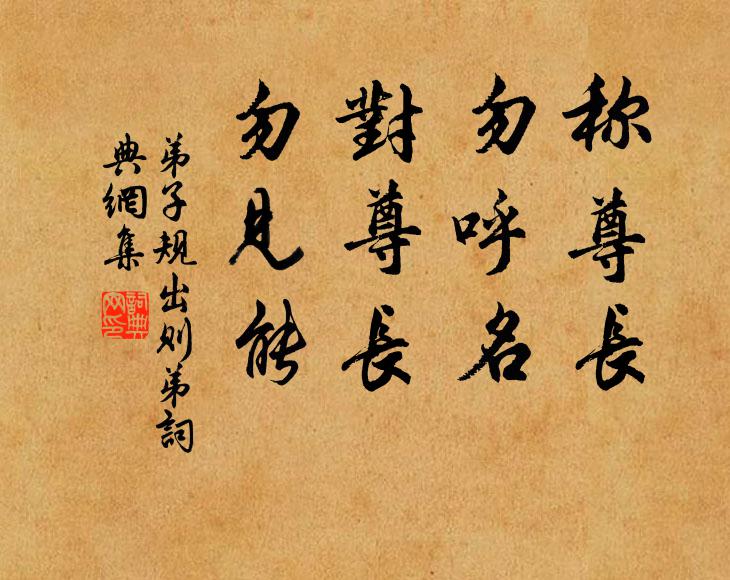 称尊長
勿呼名
對尊長
勿見能
弟子規出則弟詞
典網集
詞典
网印